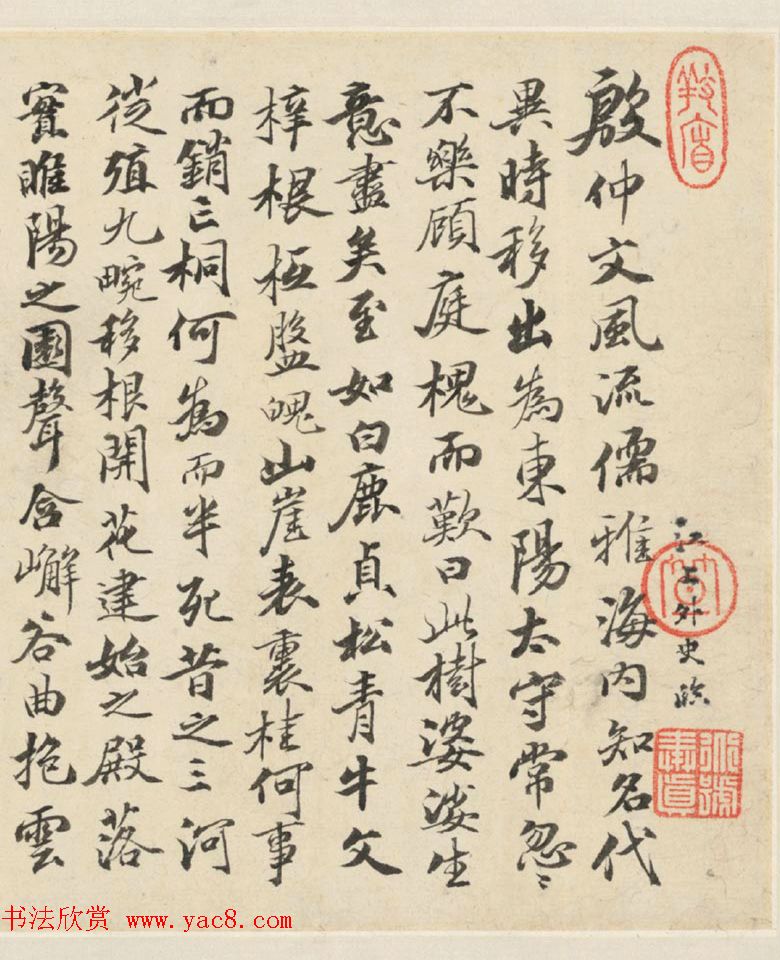 江上外史臨
殷仲文風流儒雅海内知名代
異時移出為東陽太守常忽〻
不樂顧庭槐而歎曰此樹婆娑生
意盡矣至如白鹿貞松青牛文
梓根柢盤魄山崖表裏桂何事
而銷亡桐何為而半死昔之三河
徙殖九畹移根開花建始之殿落
實睢陽之園聲含嶰谷曲抱雲
书法欣赏 www.yac8.com